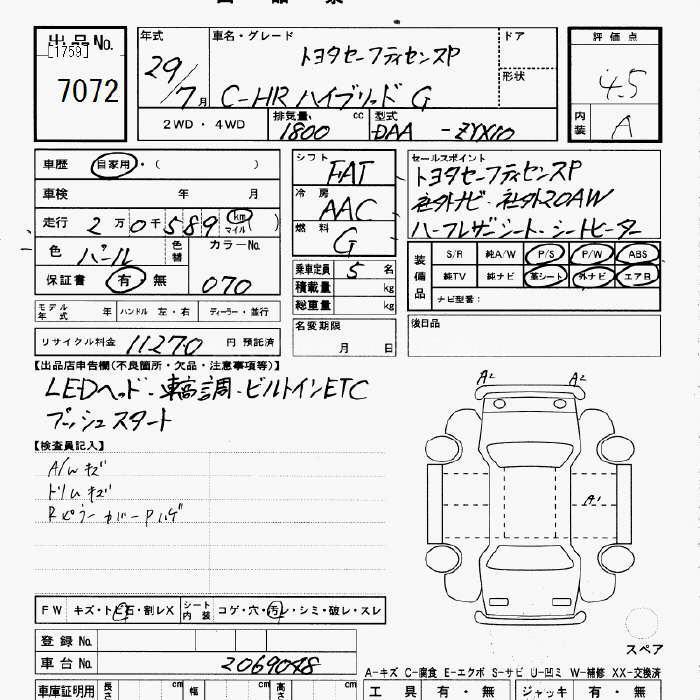 出品No.
[1759]
7072
年式 29/7月
車名・グレード トヨタセーフティセンスP
C-HR ハイブリッド G
ドア
形状
評価点 4.5
内装 A
2WD・4WD 排気量 1800 cc 型式 DAA - ZYX10
車歴 自家用・( )
車検 年 月
走行 2万0千589 km マイル ( )
色 パール 色替 カラーNo. 070
保証書 有・無
シフト FAT
冷房 AAC
燃料 G
乗車定員 5 名
積載量 kg
総重量 kg
セールスポイント
トヨタセーフティセンスP
社外ナビ・社外20AW
ハーフレザーシート・シートヒーター
装備品 S/R 純A/W P/S P/W ABS
純TV 純ナビ 革シート 外ナビ エアB
ナビ型番:
モデル年式 年 ハンドル 左・右 ディーラー・並行
名変期限 月 日
後日品
リサイクル料金 11270 円 預託済
【出品店申告欄(不良箇所・欠品・注意事項等)】
LEDヘッド・車高調・ビルトインETC
プッシュスタート
A2 A2
【検査員記入】
A/Wキズ
ドリムキズ
RピラーカバーPハゲ
A1
FW キズ・トビ石・割レX シート内装 コゲ・穴・汚レ・シミ・破レ・スレ
登録No.
スペア
車台No. 2069048
A-キズ C-腐食 E-エクボ S-サビ U-凹ミ W-補修 XX-交換済
車庫証明用 長さ cm 幅 cm 高さ cm
工具 有・無 ジャッキ 有・無